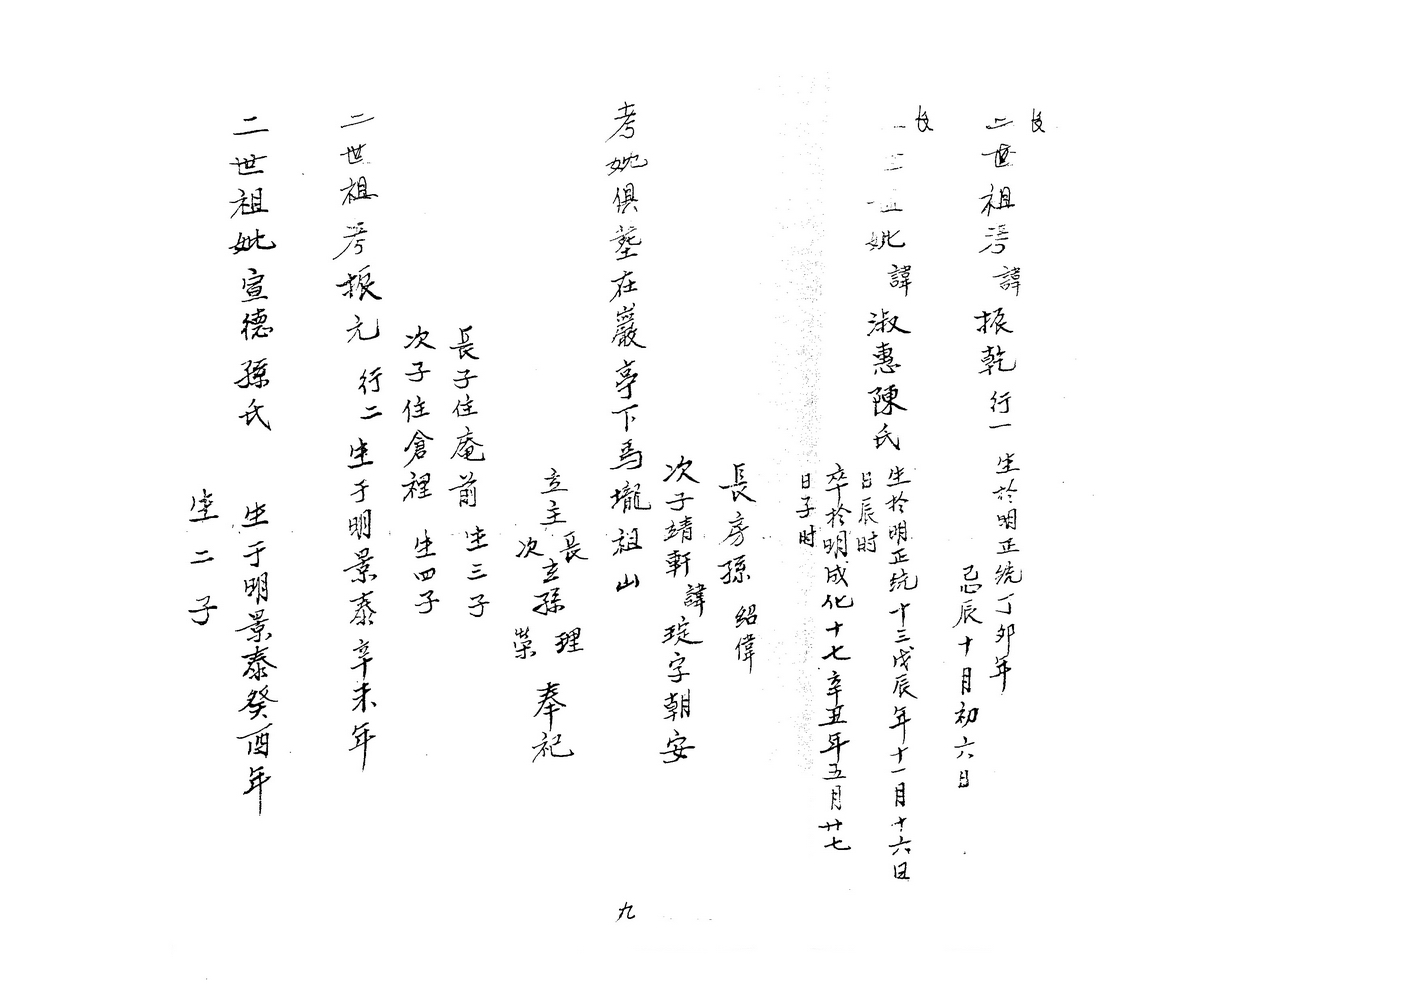 長
二世祖考諱振乾行一 生於明正統丁卯年
己辰十月初六日
長
二世妣諱淑惠陳氏 生於明正統十三戊辰年十一月十六日
日辰时
卒於明成化十七辛丑年五月廿七
日子时
長房孫 紹偉
次子靖軒諱琔字朝安
考妣俱塟在巖亭下馬壠祖山
立主長玄孫理 奉祀
次 榮
長子住庵前 生三子
次子住倉裡 生四子
二世祖考振元 行二 生于明景泰辛未年
二世祖妣宣德孫氏 生于明景泰癸酉年
生二子
九